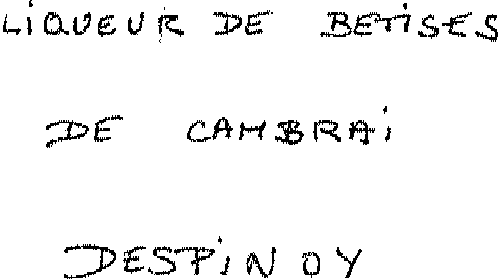 LiQUEUR DE BETiSES
DE CAMBRAi
DESPiNOY